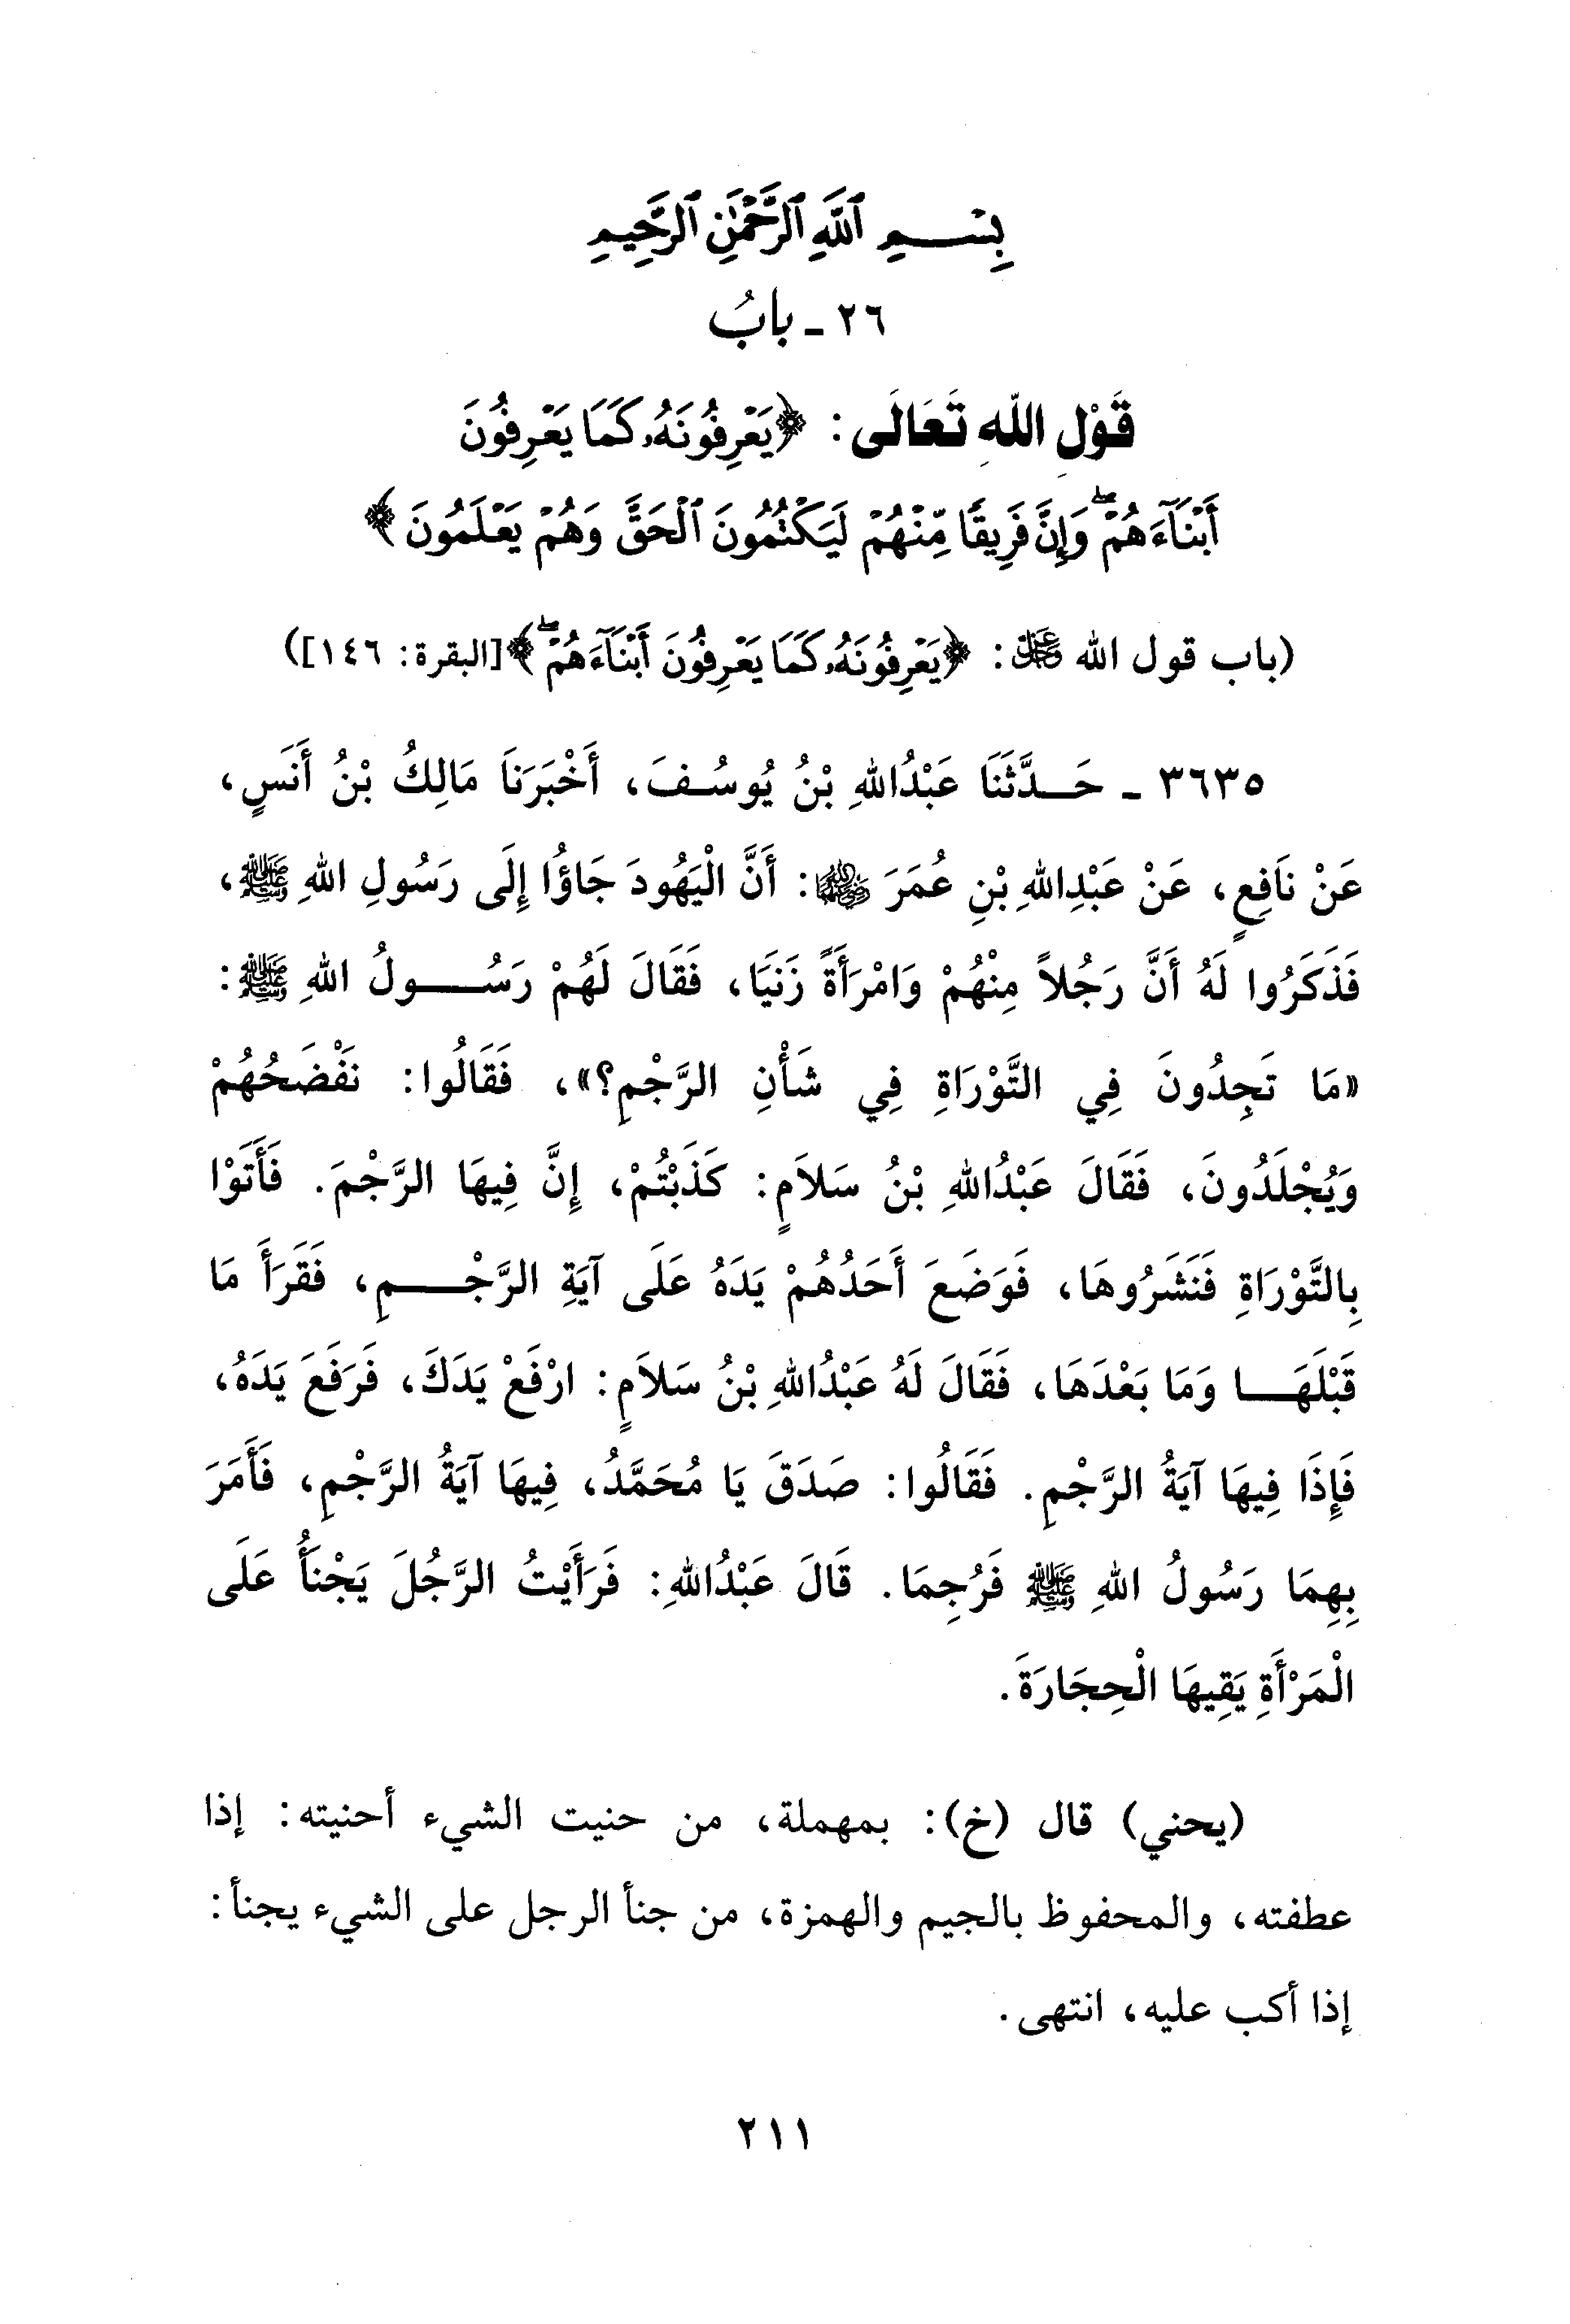 بِسْمِ ٱللَّهِ ٱلرَّحْمَٰنِ ٱلرَّحِيمِ
٢٦ - بابُ
قَوْلِ اللَّهِ تَعَالَى: ﴿يَعْرِفُونَهُۥ كَمَا يَعْرِفُونَ
أَبْنَآءَهُمْ ۖ وَإِنَّ فَرِيقًا مِّنْهُمْ لَيَكْتُمُونَ ٱلْحَقَّ وَهُمْ يَعْلَمُونَ﴾
(باب قول الله عَزَّوَجَلَّ: ﴿يَعْرِفُونَهُۥ كَمَا يَعْرِفُونَ أَبْنَآءَهُمْ ۖ﴾[البقرة: ١٤٦])
٣٦٣٥ - حَـدَّثَنَا عَبْدُاللهِ بْنُ يُوسُـفَ، أَخْبَرَنَا مَالِكُ بْنُ أَنَسٍ،
عَنْ نَافِعٍ، عَنْ عَبْدِاللهِ بْنِ عُمَرَ رضي الله عنهما: أَنَّ الْيَهُودَ جَاؤُا إِلَى رَسُولِ اللهِ ﷺ،
فَذَكَرُوا لَهُ أَنَّ رَجُلاً مِنْهُمْ وَامْرَأَةً زَنَيَا، فَقَالَ لَهُمْ رَسُـولُ اللهِ ﷺ:
«مَا تَجِدُونَ فِي التَّوْرَاةِ فِي شَأْنِ الرَّجْمِ؟»، فَقَالُوا: نَفْضَحُهُمْ
وَيُجْلَدُونَ، فَقَالَ عَبْدُاللهِ بْنُ سَلاَمٍ: كَذَبْتُمْ، إِنَّ فِيهَا الرَّجْمَ. فَأَتَوْا
بِالتَّوْرَاةِ فَنَشَرُوهَا، فَوَضَعَ أَحَدُهُمْ يَدَهُ عَلَى آيَةِ الرَّجْـمِ، فَقَرَأَ مَا
قَبْلَهَـا وَمَا بَعْدَهَا، فَقَالَ لَهُ عَبْدُاللهِ بْنُ سَلاَمٍ: ارْفَعْ يَدَكَ، فَرَفَعَ يَدَهُ،
فَإِذَا فِيهَا آيَةُ الرَّجْمِ. فَقَالُوا: صَدَقَ يَا مُحَمَّدُ، فِيهَا آيَةُ الرَّجْمِ، فَأَمَرَ
بِهِمَا رَسُولُ اللهِ ﷺ فَرُجِمَا. قَالَ عَبْدُاللهِ: فَرَأَيْتُ الرَّجُلَ يَجْنَأُ عَلَى
الْمَرْأَةِ يَقِيهَا الْحِجَارَةَ.
(يحني) قال (خ): بمهملة، من حنيت الشيء أحنيته: إذا
عطفته، والمحفوظ بالجيم والهمزة، من جنأ الرجل على الشيء يجنأ:
إذا أكب عليه، انتهى.
٢١١